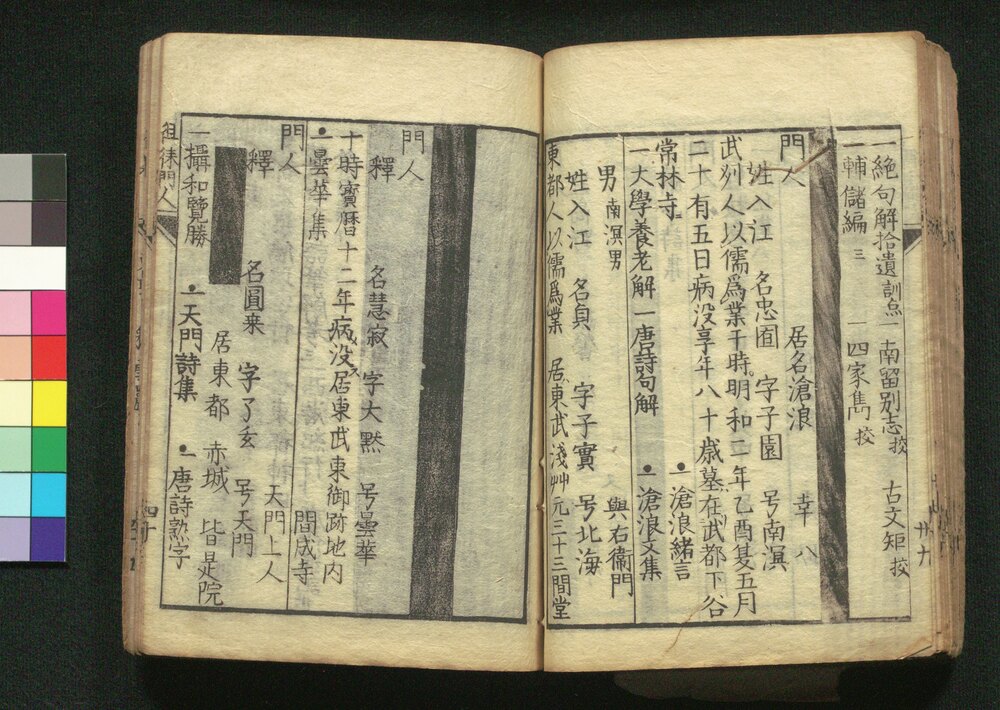 一絶句解拾遺訓点 一南留別志 校 古文矩 校
一輔儲編 三 一四家雋 校
廿九
居名滄浪 幸八
門人
姓入江 名忠囿 字子園 号南溟
武刕人以儒爲業于時明和二年乙酉夏五月
二十有五日病没享年八十歳墓在武都下谷
常林寺 ・滄浪緒言
一大學養老解 一唐詩句解 ・滄浪文集
男 南溟男 與右衞門
姓入江 名貞 字子實 号北海
東都人以儒爲業 居東武淺艸元三十三間堂
門人
釋 名慧寂 字大黙 号曇華
十時寳暦十二年病没居東武東御跡地内
・一曇華集 聞成寺
門人 天門上人
釋 名圓来 字了玄 号天門
居東都 赤城 皆是院
一攝和覽勝 ・一天門詩集 ・一唐詩熟字
徂徠門人